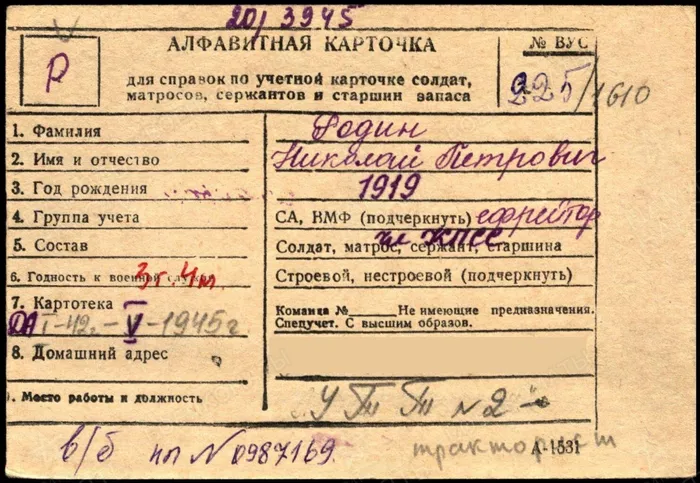 20/3945
АЛФАВИТНАЯ КАРТОЧКА
№ ВУС
Р
для справок по учетной карточке солдат,
матросов, сержантов и старшин запаса
225/1610
1. Фамилия Родин
2. Имя и отчество Николай Петрович
3. Год рождения 1919
4. Группа учета СА, ВМФ (подчеркнуть) ефрейтор
5. Состав Солдат, матрос, сержант, старшина
чл КПСС
6. Годность к военной службе 3г. 4м Строевой, нестроевой (подчеркнуть)
7. Картотека Команда №____ Не имеющие предназначения.
I-42г.-V-1945г Спецучет. С высшим образов.
8. Домашний адрес
9. Место работы и должность УТТ №2
в/б нп №0987169. тракторист
А-1531